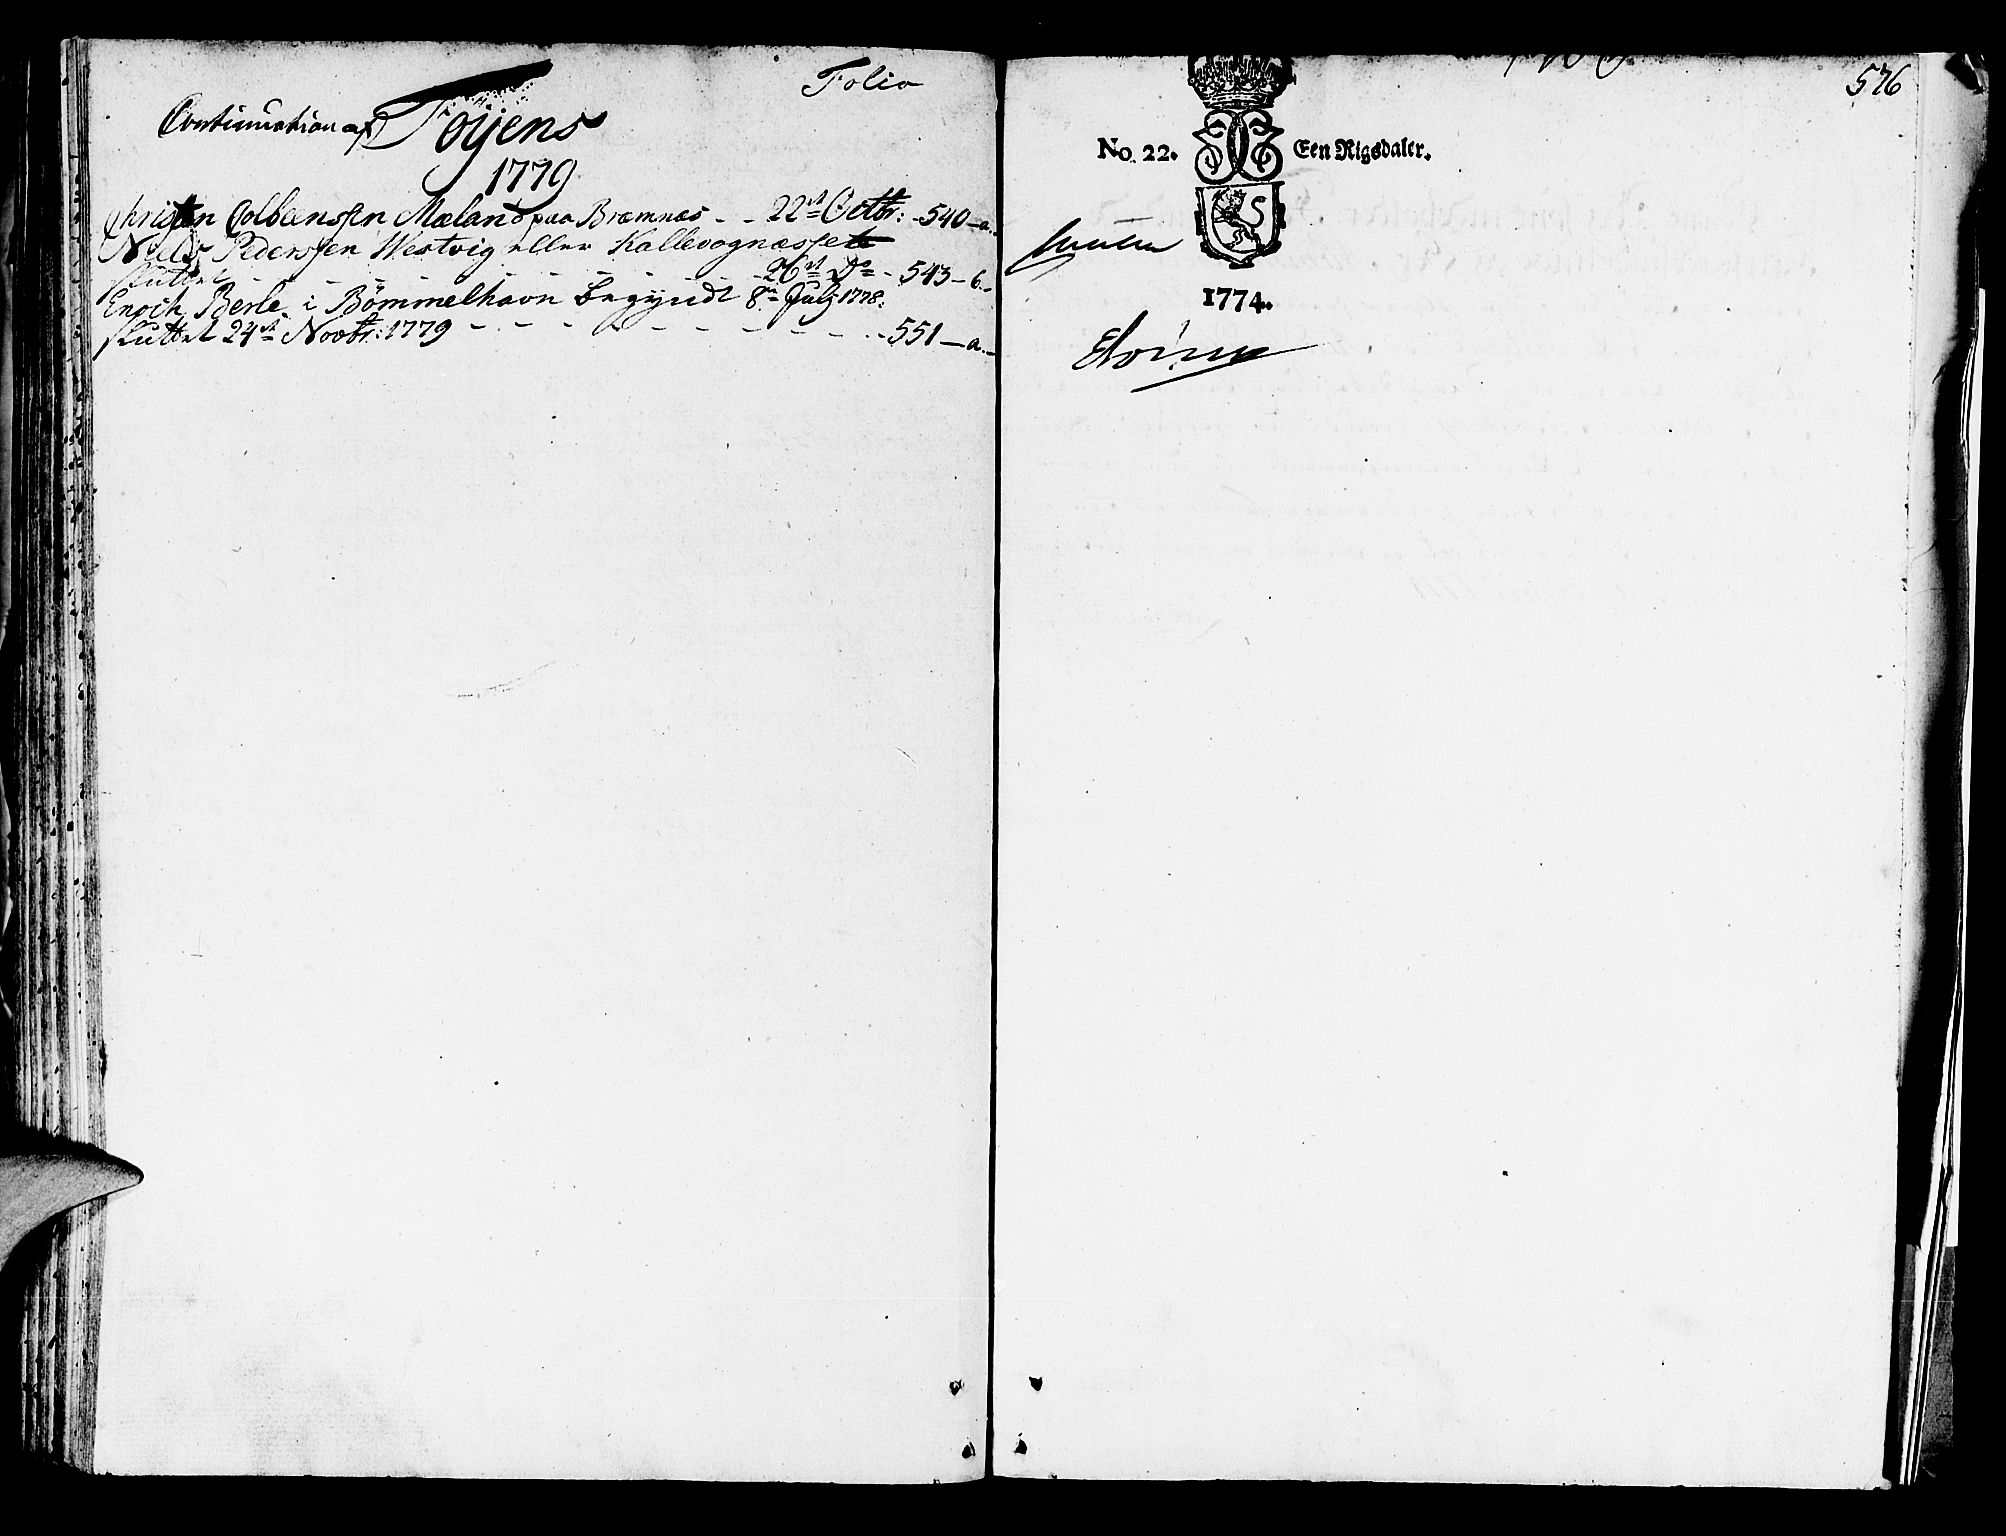 Folio
Continuation af Føyens
1779
Christen Colbeensen Mæland paa Bræmnæs - - 22de Octbr: - 540 - a.
Niels Pederssen Westvig eller Kallevognæsset
sluttet - - - - - - - 26de Do - 543 - b.
Enoch Berle i Bømmelhavn begyndt 8de July 1778.
sluttet 24de Novbr: 1779 - - - - - - - - - - 551 - a.
576
No. 22. Een Rigsdaler.
1774.